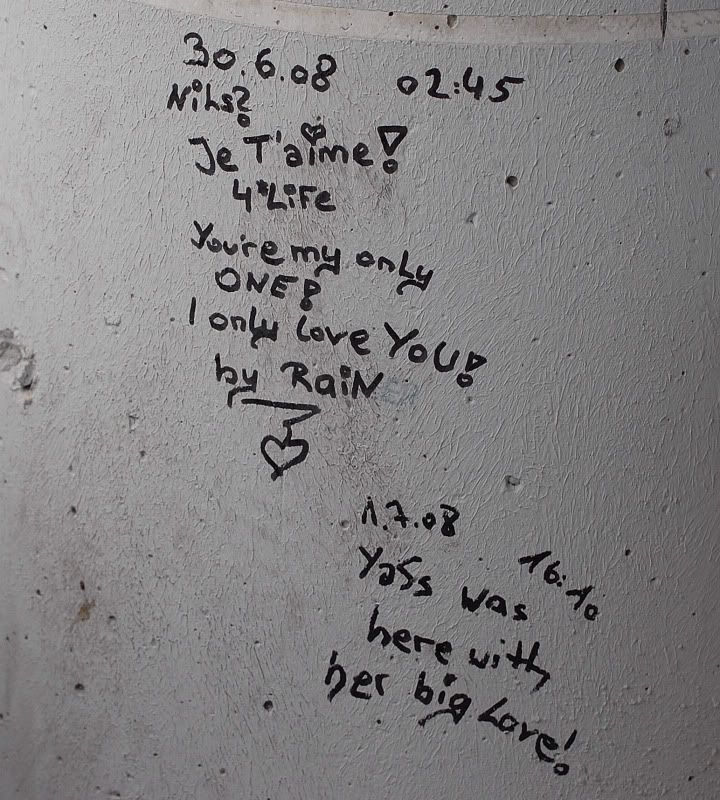 30.6.08 02:45
Nihs?
Je T'aime!
4*LiFe
You're my only
ONE!
I only love YOU!
by RaiN
1.7.08
16:10
Yass was
here with
her big Love!